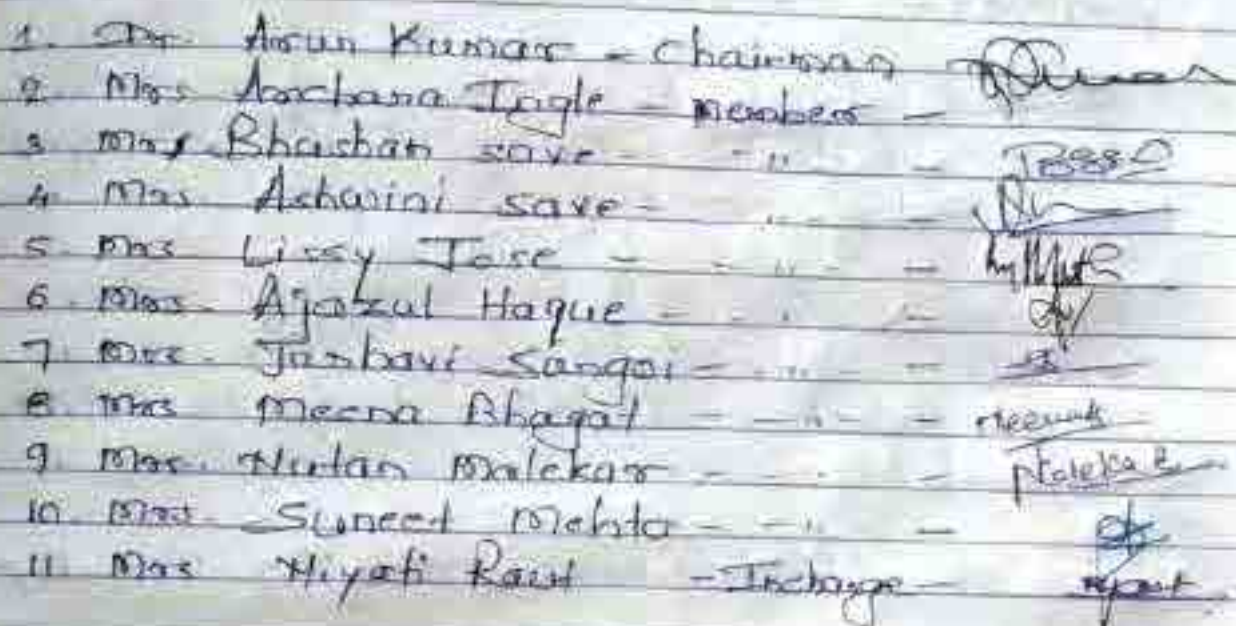 1. Dr. Arun Kumar - Chairman
2. Mrs Archana Ingle - member -
3 Mrs Bhashan save - -"- -
4 Mrs Ashwini save - -"- -
5 Mrs Lissy Jose - -"- -
6 Mrs. Ajazul Haque - -"- -
7 Mrs. Janhavi Sangoi - -"- -
8 Mrs Meena Bhagat - -"- - Meena
9 Mrs. Nutan Malekar - -"- - Malekar
10 Mrs. Suneet Mehta - -"- -
11 Mrs Niyati Raut - Incharge -